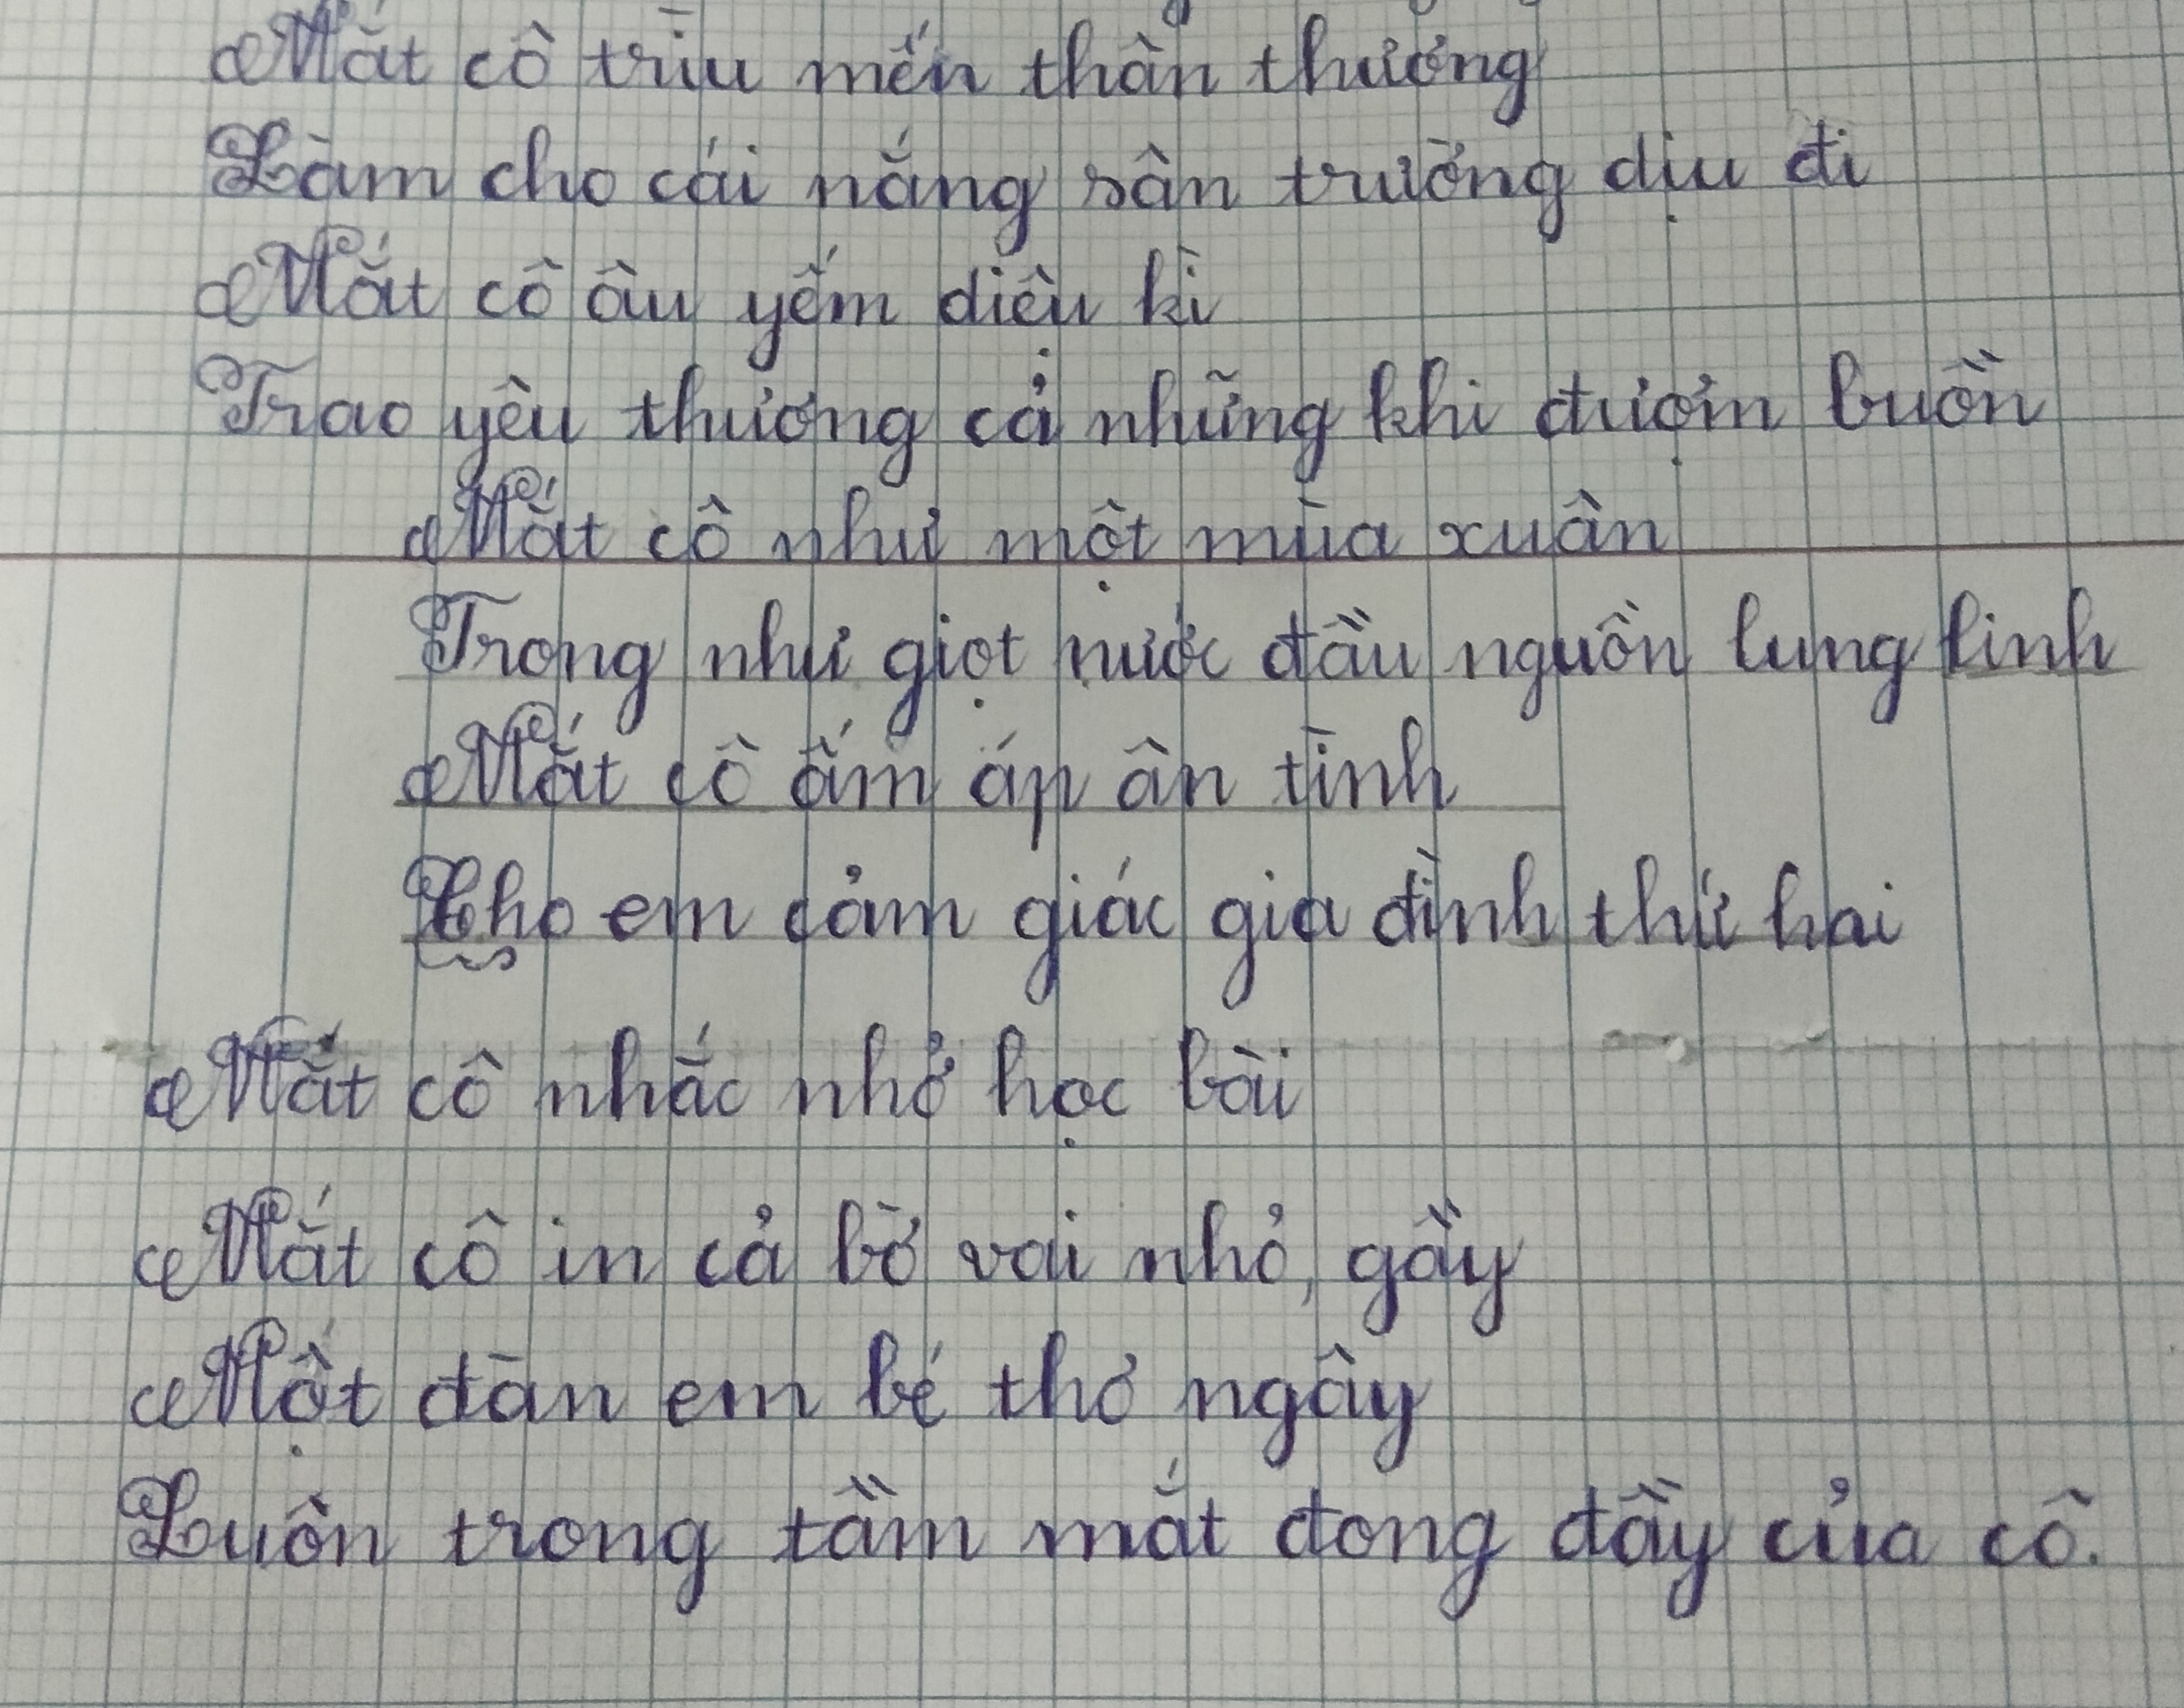 Mắt cô trìu mến thân thương
Làm cho cái nắng sân trường dịu đi
Mắt cô âu yếm diệu kì
Trao yêu thương cả những khi đượm buồn
Mắt cô như một mùa xuân
Trong như giọt nước đầu nguồn lung linh
Mắt cô ấm áp ân tình
Cho em cảm giác gia đình thứ hai
Mắt cô nhắc nhở học bài
Mắt cô in cả bờ vai nhỏ, gầy
Một đàn em bé thơ ngây
Luôn trong tầm mắt đong đầy của cô.